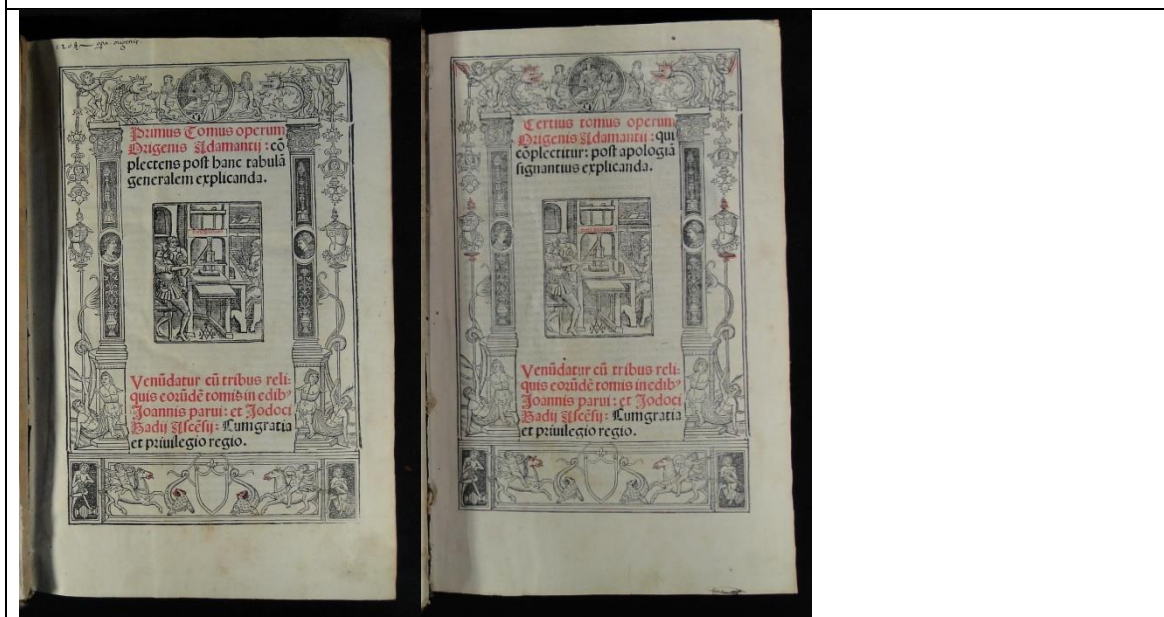 Primus Tomus operum
Origenis Adamantij : cō
plectens post hanc tabulā
generalem explicanda.
Venūdatur cū tribus reli⸗
quis eorūdē tomis in edibꝰ
Joannis parui : et Jodoci
Badij Ascēsij : Cum gratia
et priuilegio regio.
Tertius tomus operum
Origenis Adamantij : qui
cōplectitur : post apologiā
signantius explicanda.
Venūdatur cū tribus reli⸗
quis eorūdē tomis in edibꝰ
Joannis parui : et Jodoci
Badij Ascēsij : Cum gratia
et priuilegio regio.